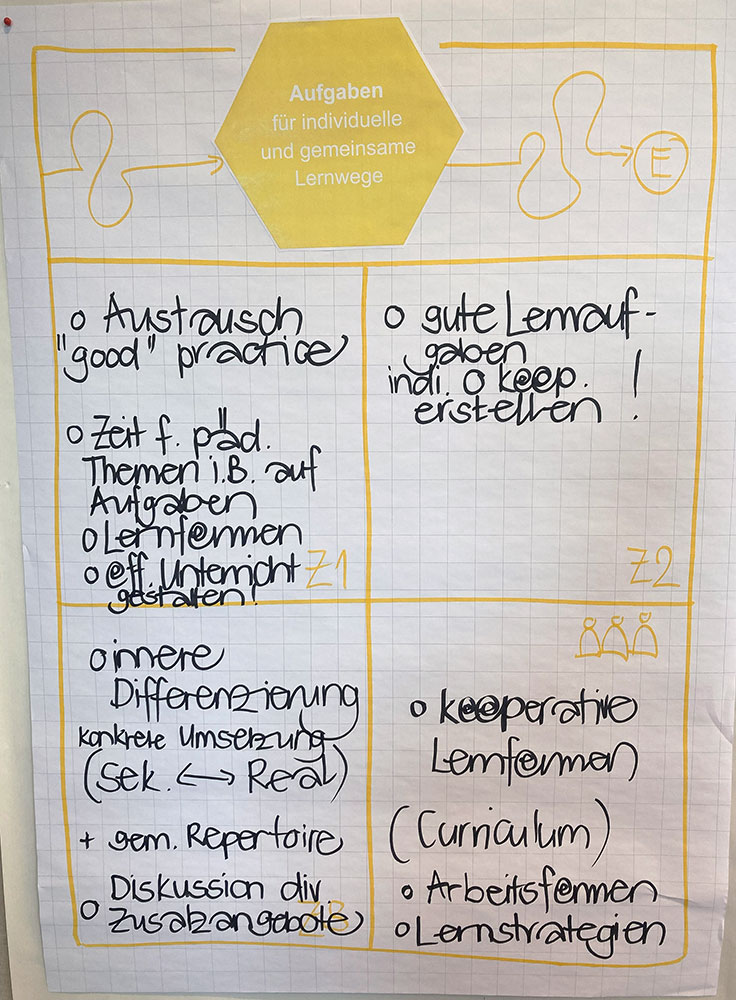 Aufgaben
für individuelle
und gemeinsame
Lernwege
E
o Austausch
"good" practice
o Zeit f. päd.
Themen i.B. auf
Aufgaben
o Lernformen
o eff. Unterricht
gestalten!
Z1
o gute Lernauf-
gaben
indi. o koop. !
erstellen
Z2
o innere
Differenzierung
konkrete Umsetzung
(Sek. <-> Real)
+ gem. Repertoire
Diskussion div
o Zusatzangebote
Z3
o kooperative
Lernformen
(Curriculum)
o Arbeitsformen
o Lernstrategien